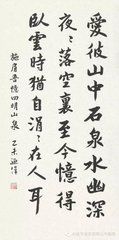 爱彼山中石泉水幽深
夜夜落空里至今憶得
臥雲時猶自涓涓在人耳
施肩吾憶四明山泉 乙未